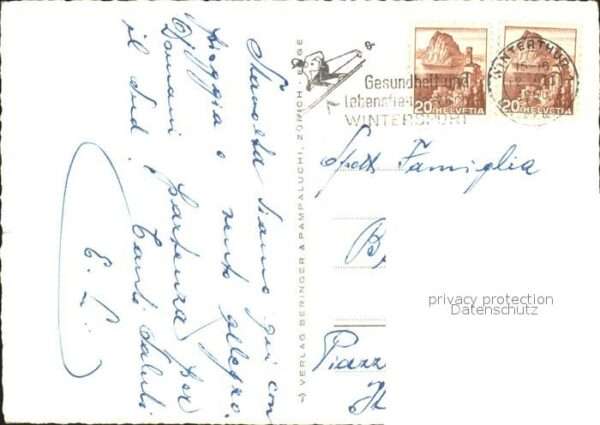 Stavolta siamo qui con
pioggia e vento allegro.
Domani partenza per
il Sud. Tanti Saluti
E. L.
VERLAG BERINGER & PAMPALUCHI, ZÜRICH
Gesundheit und
Lebensfreude
WINTERSPORT
WINTERTHUR
20 HELVETIA
20 HELVETIA
Spett. Famiglia
B
Piazz
privacy protection
Datenschutz